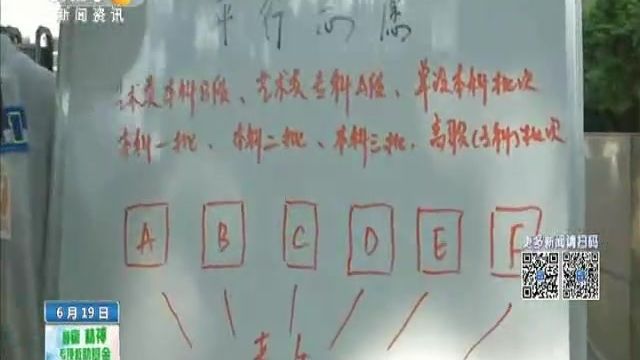 新闻资讯
平行志愿
艺术类本科B段、艺术类专科A段、单设本科批次
本科一批、本科二批、本科三批、高职(专科)批次
A B C D E F
更多新闻请扫码
6月19日